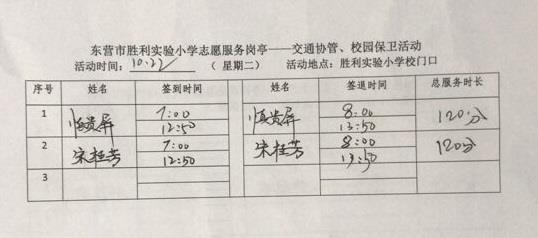 东营市胜利实验小学志愿服务岗亭——交通协管、校园保卫活动
活动时间：10.22 （星期二） 活动地点：胜利实验小学校门口
序号 姓名 签到时间 姓名 签退时间 总服务时长
1 贵屏 7:00 贵屏 8:00 120分
12:50 13:50
2 宋桂芳 7:00 宋桂芳 8:00 120分
12:50 13:50
3